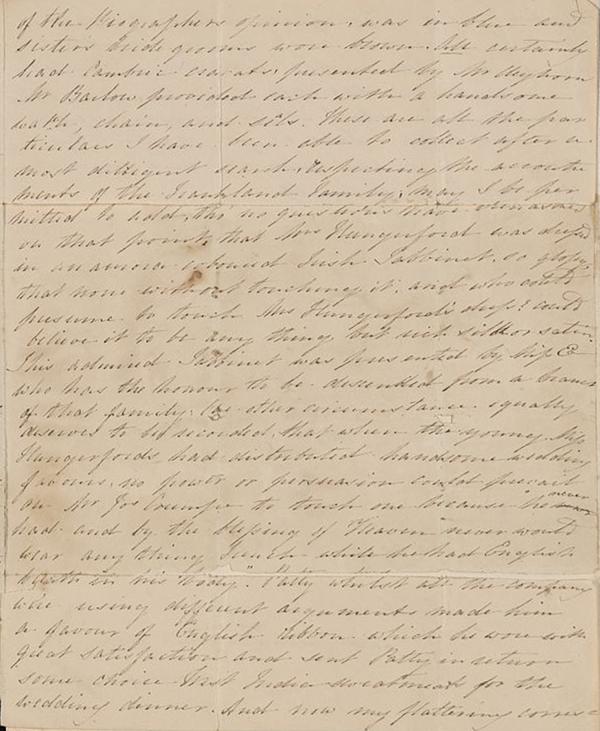 of the Biographers opinion, was in blue and
sisters bride grooms wore brown. All certainly
had Cambric cravats, presented by Mr
Mr Barlow provided each with a handsome
watch, chain, and seals. These are all the par
ticulars I have been able to collect after a
most dilligent search, respecting the accoutre
ments of the Frankland Family; may I be per
mitted to add, tho no questions have been asked
on that point, that Mrs Hungerford was dress'd
in an amora coloured Irish Tabbinet, so glossy,
that none without touching it, and who could
presume to touch Mrs Hungerford's dress! could
believe it to be any thing but rich silk or satin.
This admired Tabbinet was presented by Miss E
who has the honour to be descended from a branch
of that family. One other circumstance equally
deserves to be recorded, that when the young Miss
Hungerfords had distributed handsome wedding
favours, no power or persuasion could prevail
on Mr Jos Crumpe to touch one because "he never
had and by the blessing of Heaven never would
wear any thing French while he had English
breath in his body." Patty whilst all the company
were using different arguments made him
a favour of English ribbon which he wore with
great satisfaction and sent Patty in return
some choice West India sweatmeat for the
wedding dinner. And now my flattering corres=